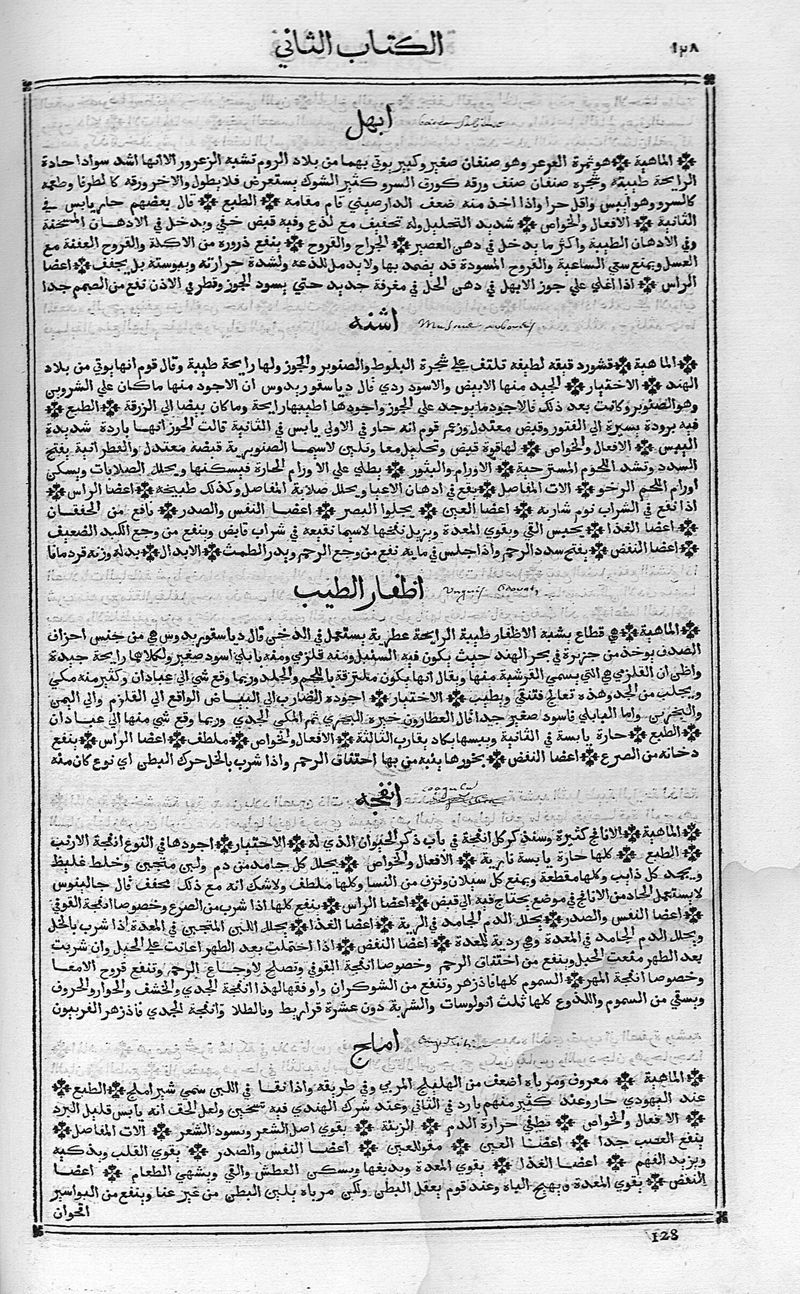 ١٢٨
الكتاب الثاني
ابهل
الماهية هو ثمرة العرعر وهو صنفان صغير وكبير يوتي بهما من بلاد الروم تشبه الزعرور الا انها اشد سوادا حادة
الرايحة طيبته وشجره صنفان صنف ورقه كورق السرو كثير الشوك يستعرض فلا يطول والاخر ورقه كالطرفا وطعمه
كالسرو وهو ايبس واقل حرا واذا اخذ منه ضعف الدارصيني قام مقامه الطبع قال بعضهم حار يابس في
الثانية الافعال والخواص شديد التحليل وله تجفيف مع لذع وفيه قبض خفي ويدخل في الادهان المسخنة
وفي الادهان الطيبة واكثر ما يدخل في دهن العصير الجراح والقروح ينفع ذروره من الاكلة والقروح العفنة مع
العسل ويمنع سعي الساعية والقروح المسودة قد يضمد بها ولا يدمل للذعه ولشدة حرارته ويبوسته بل يجفف اعضا
الراس اذا اغلي علي جوز الابهل في دهن الحل في مغرفة حديد حتي يسود الجوز وقطر في الاذن نفع من الصمم جدا
اشنه
الماهية قشور دقيقه لطيفه تلتف علي شجرة البلوط والصنوبر والجوز ولها رايحة طيبة وقال قوم انها يوتي من بلاد
الهند الاختيار الجيد منها الابيض والاسود ردي قال دياسقوريدوس ان الاجود منها ما كان علي الشربين
وهو الصنوبر وكانت بعد ذلك فالاجود ما يوجد علي الجوز واجودها اطيبها رايحة وما كان بيضا الي الزرقة الطبع
فيه برودة يسيرة الي الفتور وقبض معتدل وزعم قوم انه حار في الاولي يابس في الثانية قالت الجوز انها باردة شديدة
اليبس الافعال والخواص لها قوة قبض وتحليل معا وتلين لاسيما الصنوبرية قبضه معتدل والقطرانية يفتح
السدد وتشد اللحوم المسترخية الاورام والبثور يطلي علي الاورام الحارة فيسكنها ويحلل الصلابات ويسكن
اورام اللحم الرخو الات المفاصل يقع في ادهان الاعيا ويحلل صلابة المفاصل وكذلك طبيخه اعضا الراس
اذا نقع في الشراب نوم شاربه اعضا العين يجلوا البصر اعضا النفس والصدر نافع من الخفقان
اعضا الغذا يحبس القي ويقوي المعدة ويزيل نفخها لاسيما نقيعه في شراب قابض وينفع من وجع الكبد الضعيف
اعضا النفض يفتح سدد الرحم واذا جلس في مايه نفع من وجع الرحم ويدر الطمث الابدال بدله وزنه قردمانا
اظفار الطيب
الماهية هي قطاع يشبه الاظفار طيبة الرايحة عطرية يستعمل في الدخن قال دياسقوريدوس هي من جنس اجزاف
الصدف يوخذ من جزيرة في بحر الهند حيث يكون فيه السنبل ومنه قلزمي ومنه بابلي اسود صغير ولكلاهما رايحة جيدة
واظن ان القلزمي هي التي يسمي القرشية منها ويقال انها يكون ملتزقة باللحم والجلد وربما وقع شي الي عبادان وكثير منه مكي
ويجلب من الجد وهذه تعالج فتنقي ويطيب الاختيار اجوده الضارب الي البياض الواقع الي القلزم والي اليمن
والبحرين واما البابلي فاسود صغير جيدا قال العطارون خيره البحري ثم المكي الجدي وربما وقع شي منها الي عبادان
الطبع حارة يابسة في الثانية ويبسها يكاد يقارب الثالثة الافعال والخواص ملطف اعضا الراس ينفع
دخانه من الصرع اعضا النفض بخورها ينبه من بها اختناق الرحم واذا شرب بالخل حرك البطن اي نوع كان منه
انفحه
الماهية الانافح كثيرة وسنذكر كل انفحة في باب ذكر الحيوان الذي له الاختيار اجودها في النوع انفحة الارنب
الطبع كلها حارة يابسة نارية الافعال والخواص يحلل كل جامد من دم ولبن متجبن وخلط غليظ
ويجمد كل ذايب وكلها مقطعة ويمنع كل سيلان ونزف من النسا وكلها ملطف ولا شك انه مع ذلك مجفف قال جالينوس
لا يستعمل الحاد من الانافح في موضع يحتاج فيه الي قبض اعضا الراس ينفع كلها اذا شرب من الصرع وخصوصا انفحة القوقي
اعضا النفس والصدر يحلل الدم الجامد في الرية اعضا الغذا يحلل اللبن المتجبن في المعدة اذا شرب بالخل
ويحلل الدم الجامد في المعدة وهي ردية للمعدة اعضا النفض اذا احتملت بعد الطهر اعانت علي الحبل وان شربت
بعد الطهر منعت الحبل وينفع من اختناق الرحم وخصوصا انفحة القوقي وتصلح لاوجاع الرحم وتنفع قروح الامعا
وخصوصا انفحة المهر السموم كلها فاذزهر وتنفع من الشوكران واوفقها لهذا انفحة الجدي والخشف والحوار والخروف
ويسقي من السموم واللذوع كلها ثلث انولوسات والشربة دون عشرة قراريط وبالطلا وانفحة الجدي فاذزهر الفربيون
املج
الماهية معروف ومرباه اضعف من الهليلج المربي وفي طريقه واذا نقا في اللبن سمي شير املج الطبع
عند اليهودي حار وعند كثير منهم بارد في الثاني وعند شرك الهندي فيه تسخين ولعل الحق انه يابس قليل البرد
الافعال والخواص تطفي حرارة الدم الزينة يقوي اصل الشعر ويسود الشعر الات المفاصل
ينفع العصب جدا اعضا العين مقو للعين اعضا النفس والصدر يقوي القلب ويذكيه
ويزيد الفهم اعضا الغذا يقوي المعدة ويدبغها ويسكن العطش والقي ويشهي الطعام اعضا
النفض يقوي المعدة ويهيج الباه وعند قوم يعقل البطن ولكن مرباه يلين البطن من غير عنا وينفع من البواسير
اقحوان
128